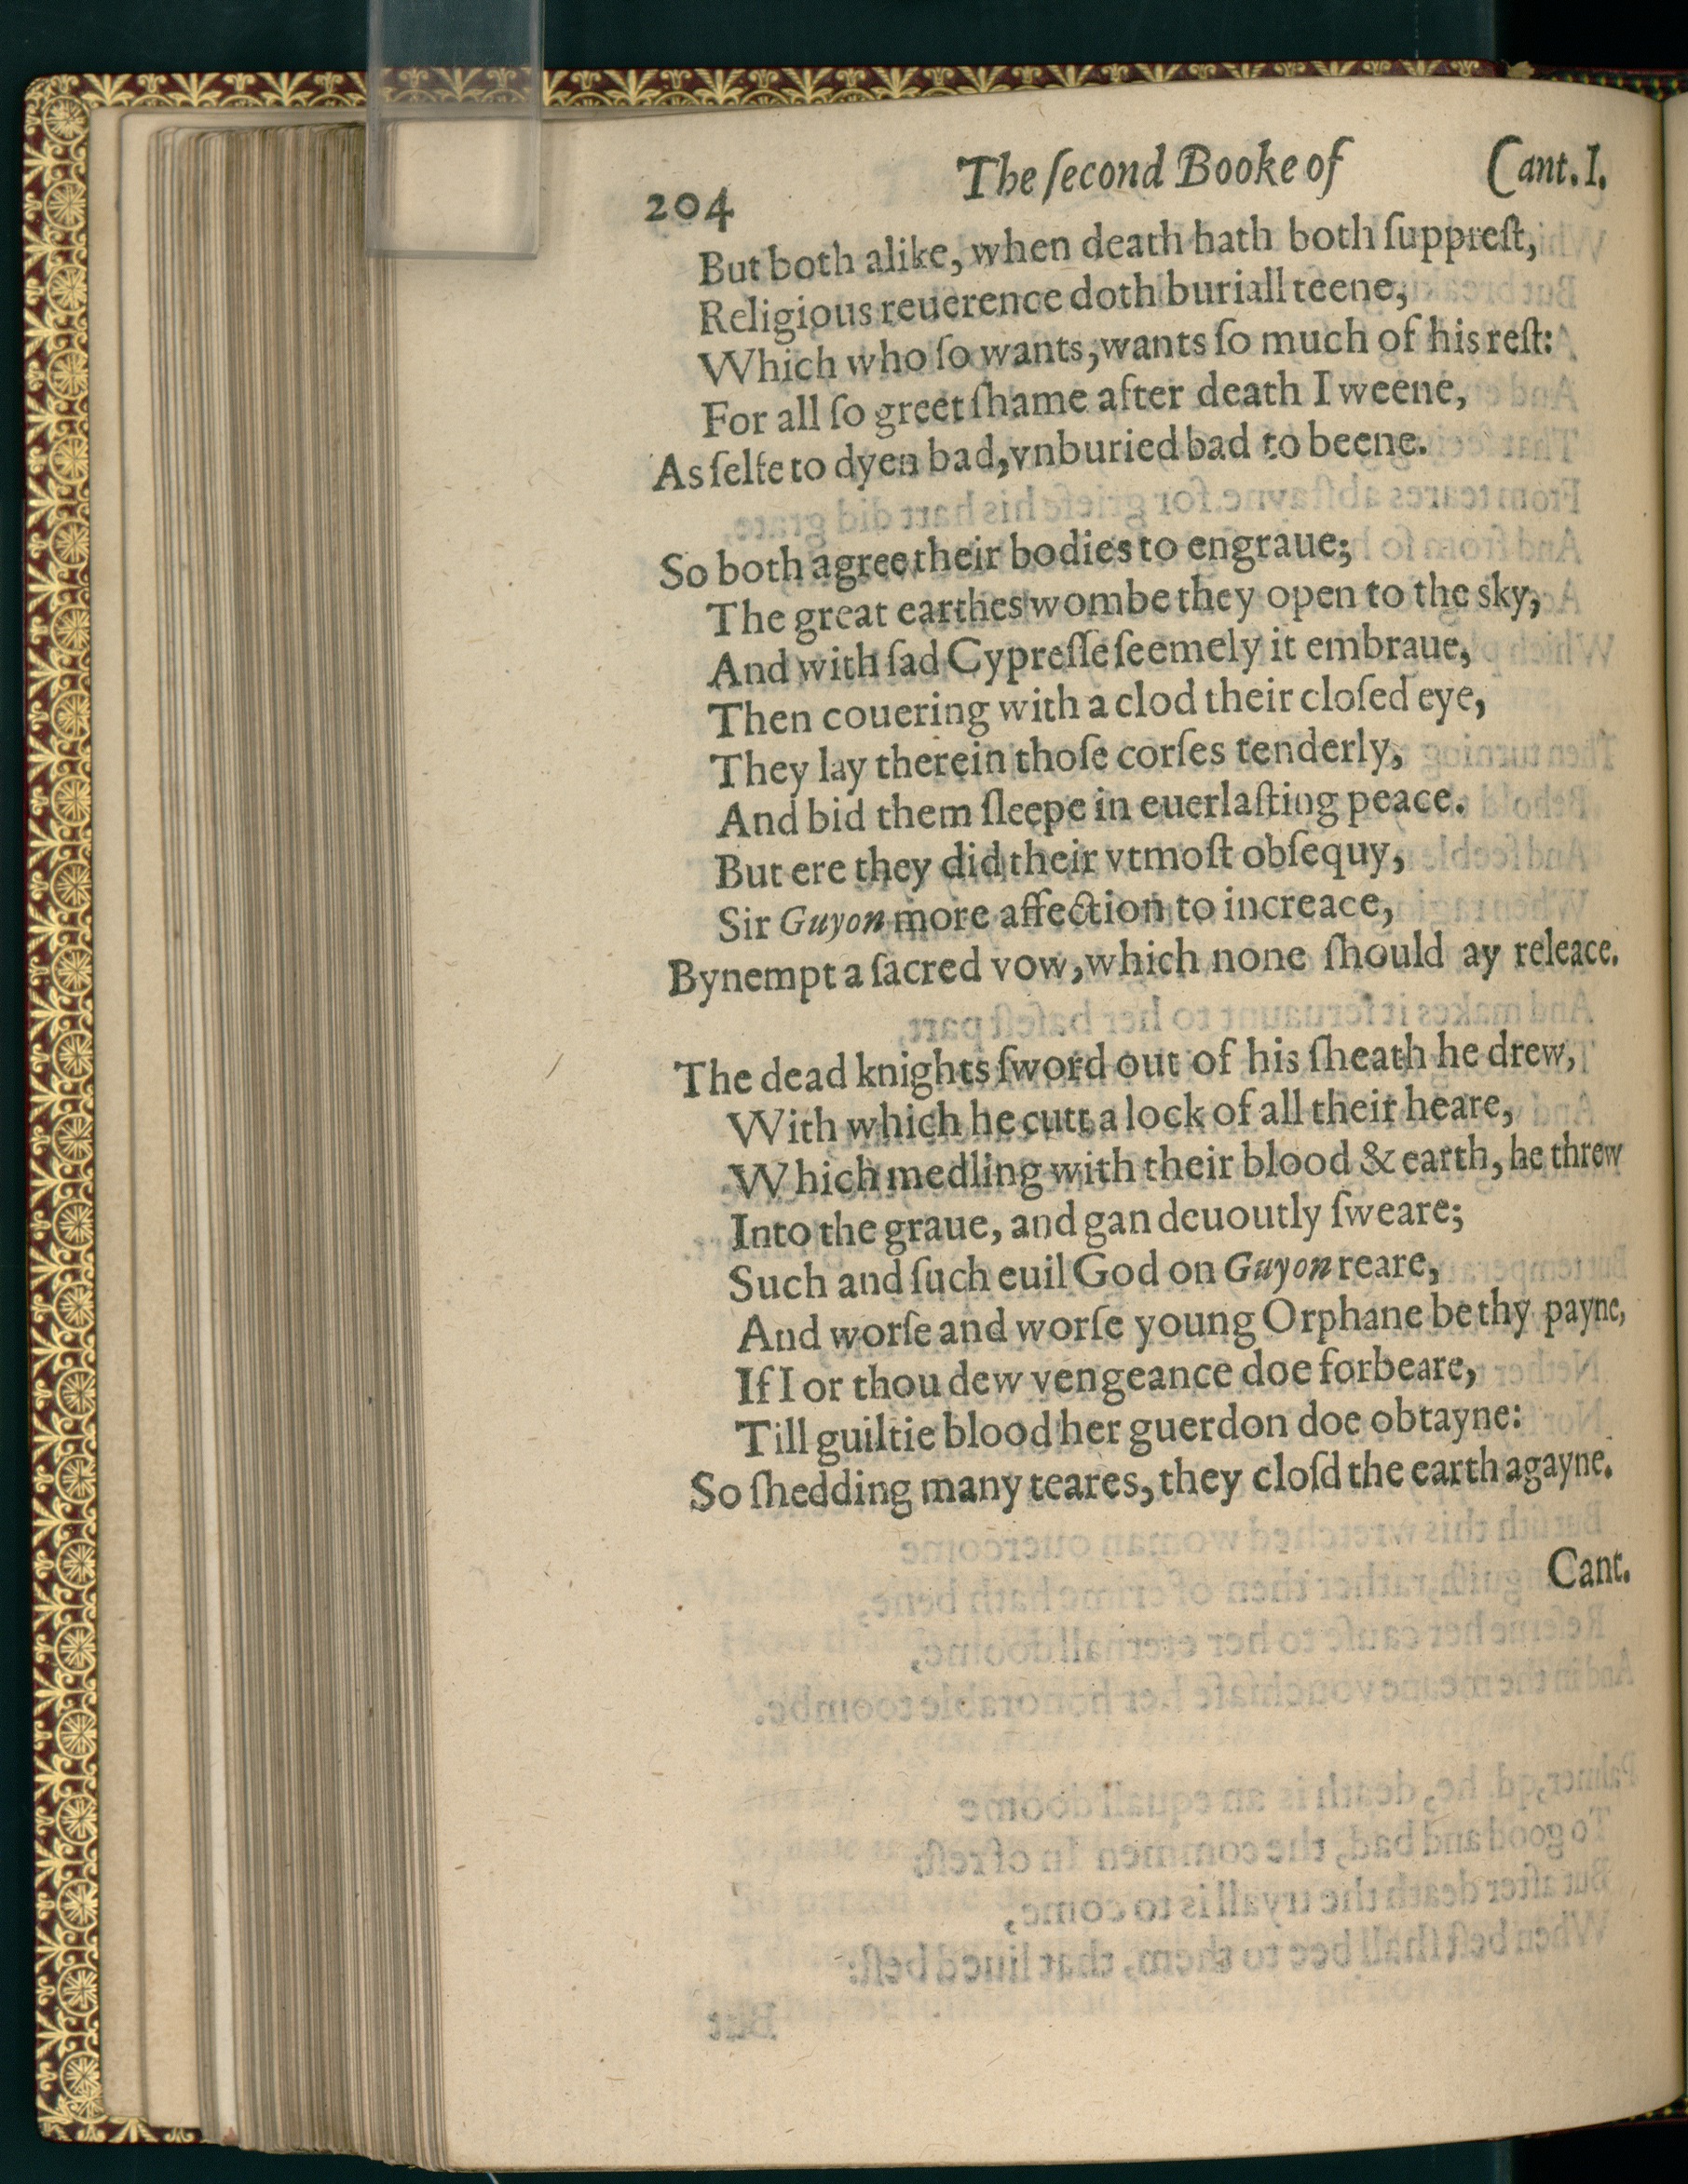 204 The ſecond Booke of Cant. I.
But both alike, when death hath both ſuppreſt,
Religious reuerence doth buriall teene,
Which who ſo wants, wants ſo much of his reſt:
For all ſo greet ſhame after death I weene,
As ſelfe to dyen bad, vnburied bad to beene.
So both agree their bodies to engraue;
The great earthes wombe they open to the sky,
And with ſad Cypreſſe ſeemely it embraue,
Then couering with a clod their cloſed eye,
They lay therein thoſe corſes tenderly,
And bid them ſleepe in euerlaſting peace.
But ere they did their vtmoſt obſequy,
Sir Guyon more affection to increace,
Bynempt a ſacred vow, which none ſhould ay releace.
The dead knights ſword out of his ſheath he drew,
With which he cutt a lock of all their heare,
Which medling with their blood & earth, he threw
Into the graue, and gan deuoutly ſweare;
Such and ſuch euil God on Guyon reare,
And worſe and worſe young Orphane be thy payne,
If I or thou dew vengeance doe forbeare,
Till guiltie blood her guerdon doe obtayne:
So ſhedding many teares, they cloſd the earth agayne.
Cant.